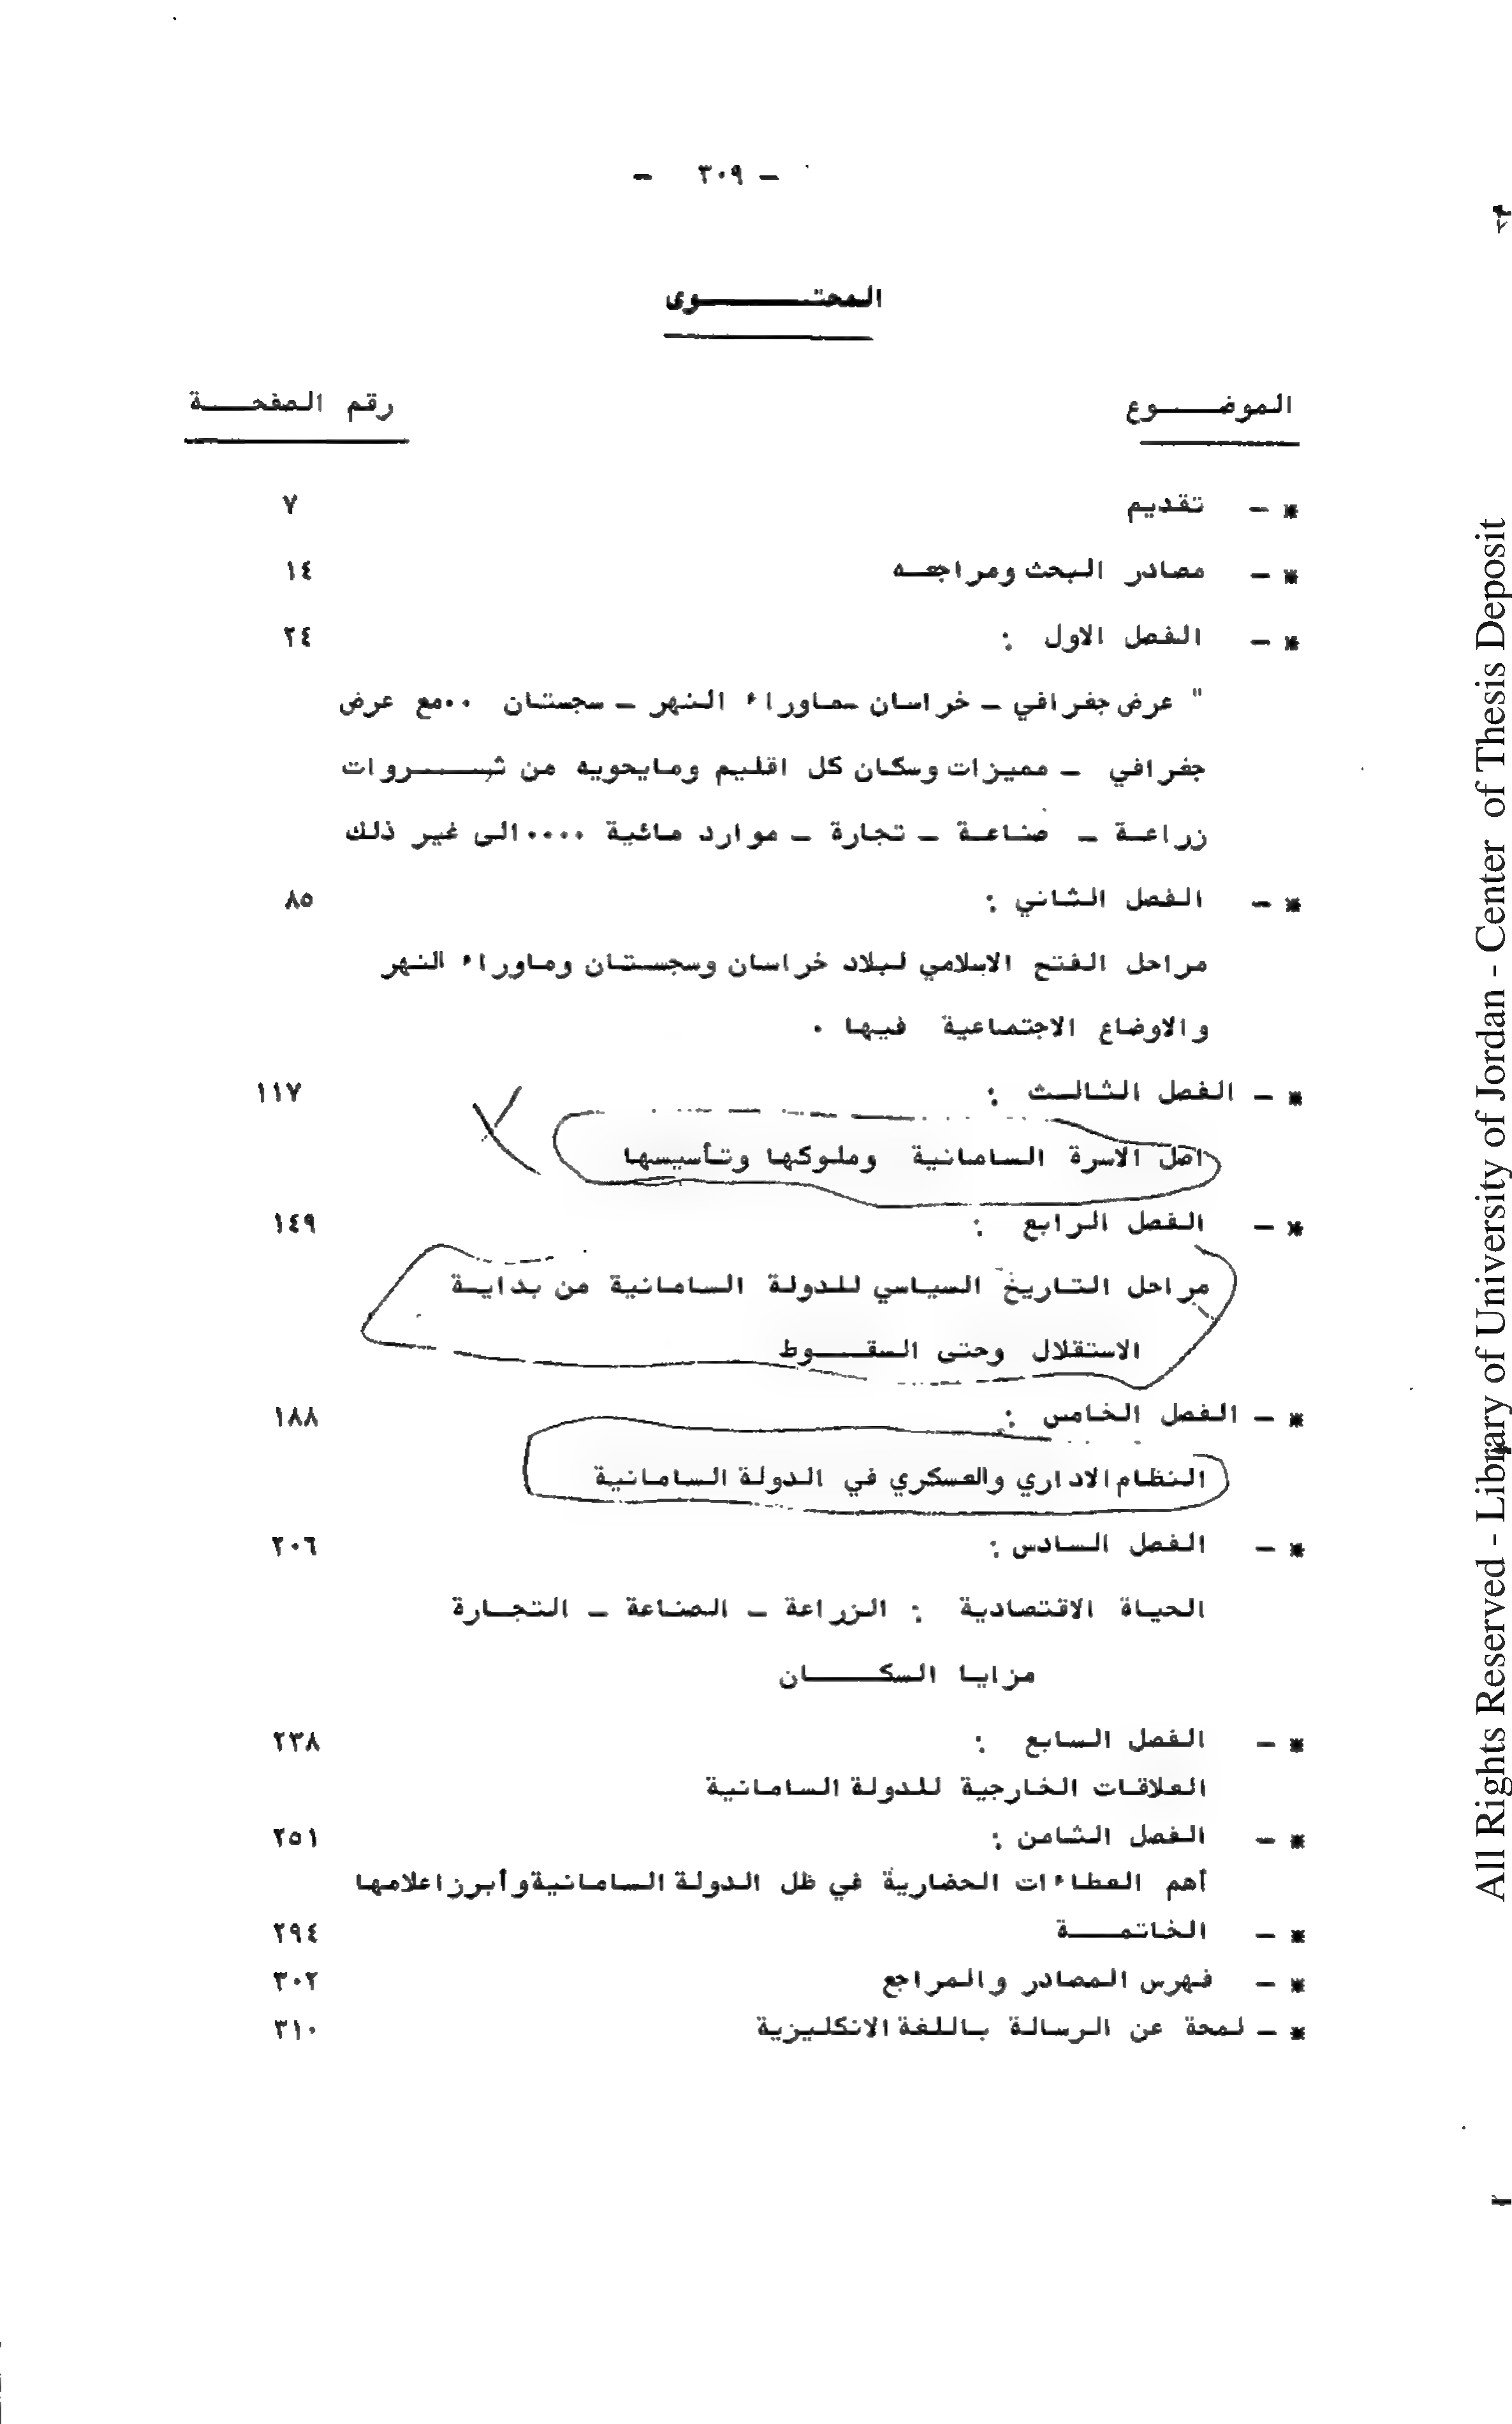 - ٣٠٩ -
المحتـــــوى
الموضـــوع رقم الصفحـــة
* - تقديم ٧
* - مصادر البحث ومراجعـه ١٤
* - الفصل الاول : ٢٤
" عرض جغرافي - خراسان -ماوراء النهر - سجستان ٠٠مع عرض
جغرافي - مميزات وسكان كل اقليم ومايحويه من ثـــــروات
زراعـة - صناعـة - تجارة - موارد مائية ٠٠٠٠الى غير ذلك
* - الفصل الثاني : ٨٥
مراحل الفتح الاسلامي لبلاد خراسان وسجستان وماوراء النهر
والاوضاع الاجتماعية فيها ٠
* - الفصل الثالث : ١١٧
اصل الاسرة السامانية وملوكها وتأسيسها
* - الفصل الرابع : ١٤٩
مراحل التاريخ السياسي للدولة السامانية من بدايـة
الاستقلال وحتى السقــوط
* - الفصل الخامس : ١٨٨
النظام الاداري والعسكري في الدولة السامانية
* - الفصل السادس : ٢٠٦
الحياة الاقتصادية : الزراعة - الصناعة - التجـارة
مزايا السكــــان
* - الفصل السابع : ٢٣٨
العلاقات الخارجية للدولة السامانية
* - الفصل الثامن : ٢٥١
أهم العطاءات الحضارية في ظل الدولة السامانية وأبرز اعلامها
* - الخاتمـــة ٢٩٤
* - فهرس المصادر والمراجع ٣٠٢
* - لمحة عن الرسالة باللغة الانكليزية ٣١٠
All Rights Reserved - Library of University of Jordan - Center of Thesis Deposit